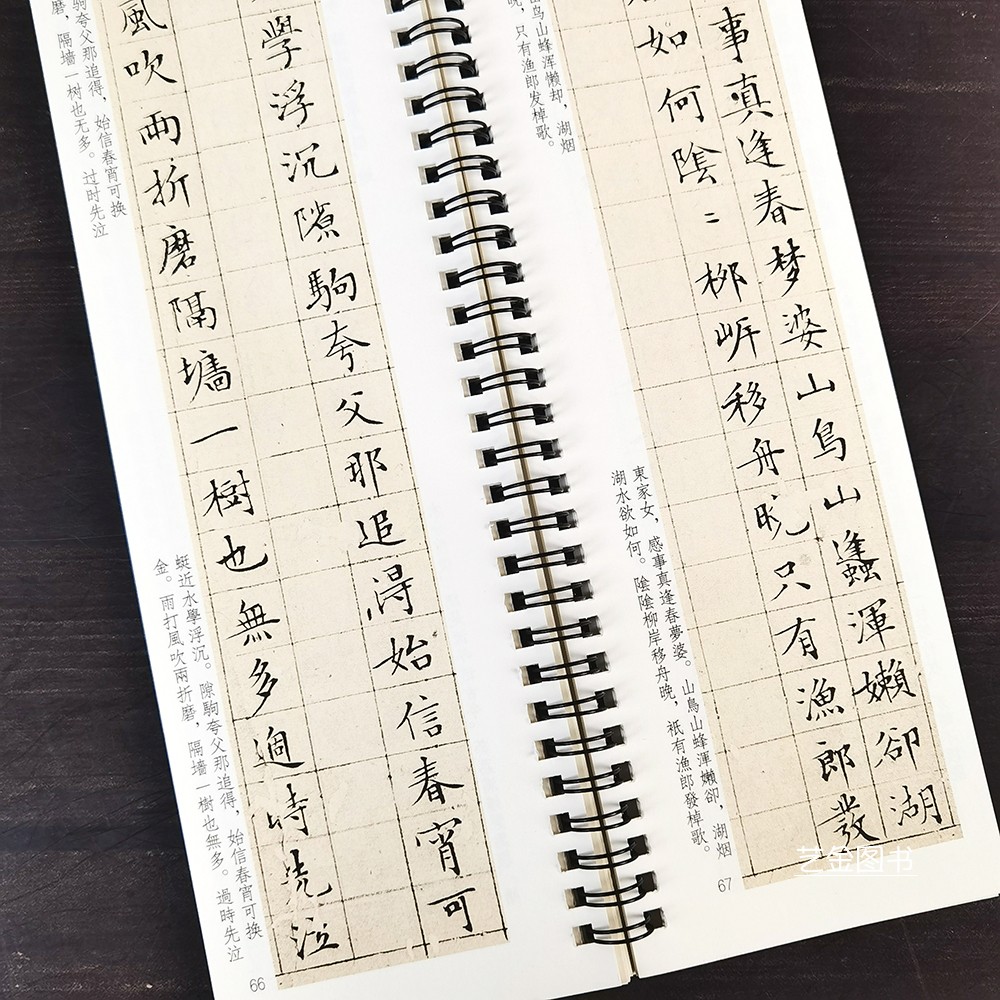 學浮沉隙駒夸父那追得始信春宵可
風吹兩折磨隔墻一樹也無多過時先泣
驹夸父那追得，始信春宵可换
磨，隔墙一树也无多。过时先泣
蜓近水學浮沉。隙駒夸父那追得，始信春宵可換
金。雨打風吹兩折磨，隔墻一樹也無多。過時先泣
66
事真逢春梦婆山鳥山蠭渾嬾卻湖
如何陰〻柳岸移舟晚只有漁郎發
鸟山蜂浑懒却，湖烟
晚，只有渔郎发棹歌。
東家女，感事真逢春夢婆。山鳥山蜂渾嬾卻，湖烟
湖水欲如何。陰陰柳岸移舟晚，祇有漁郎發棹歌。
67
艺金图书